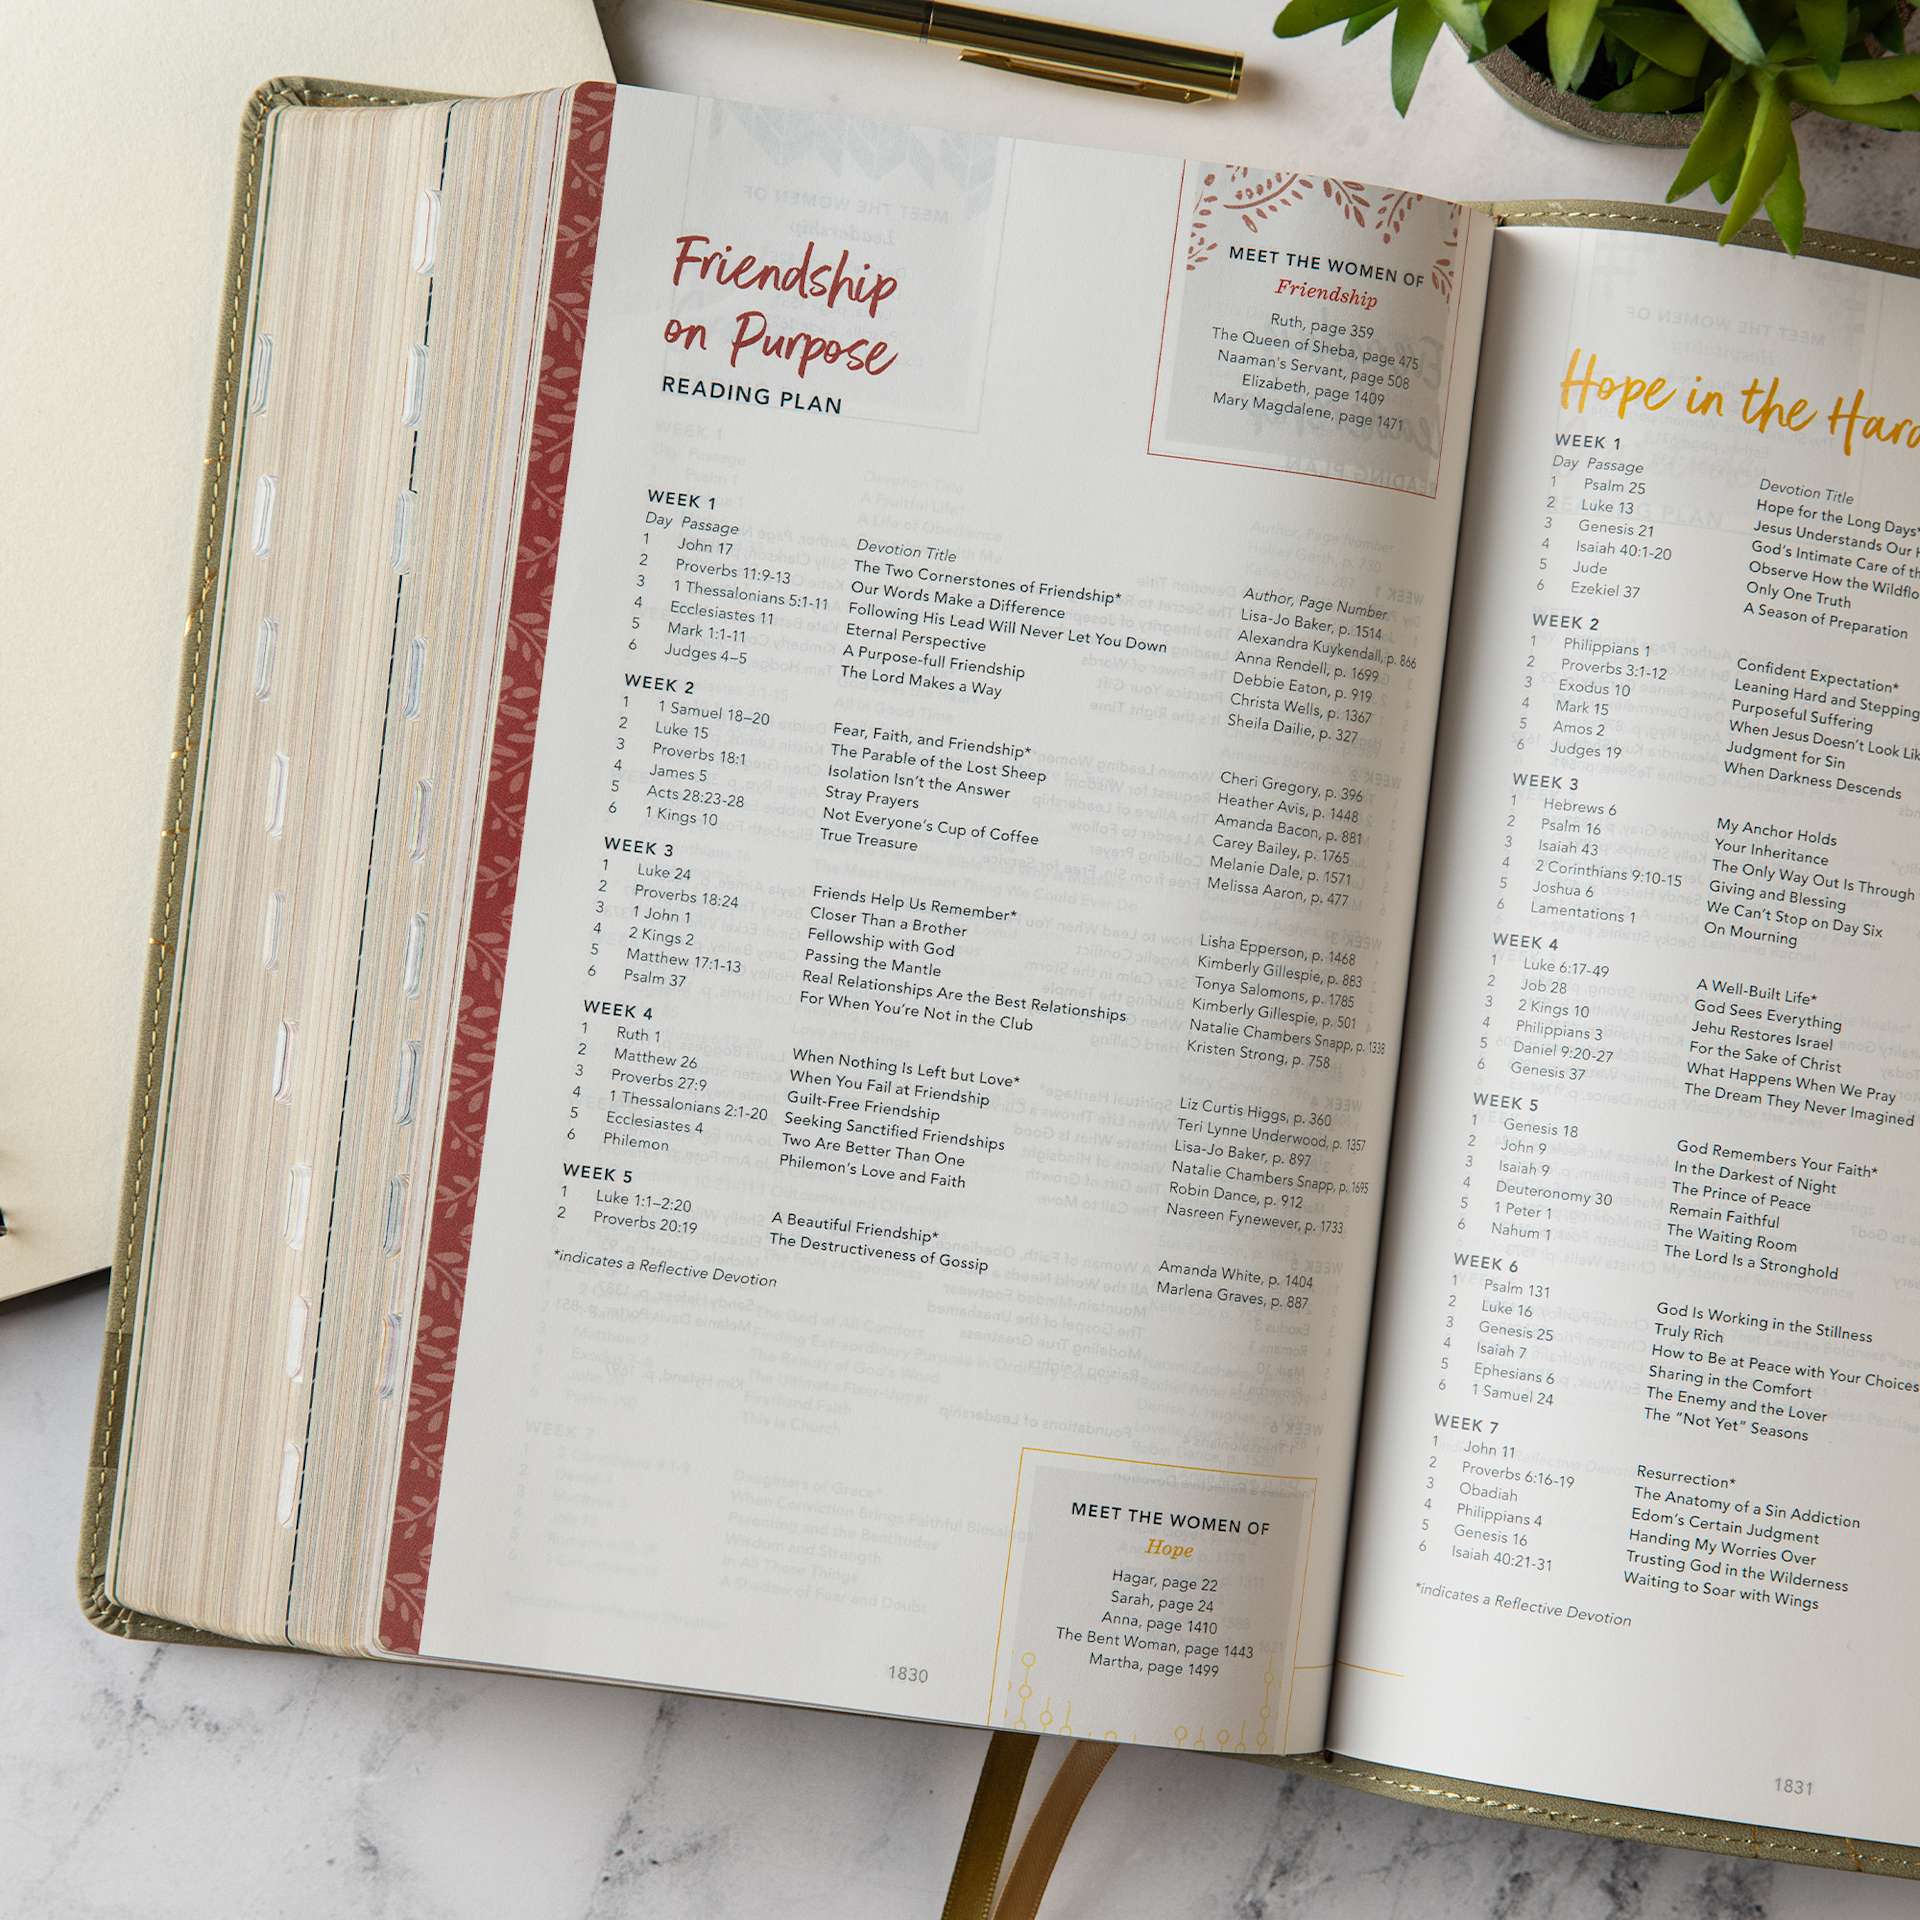 Friendship
on Purpose
READING PLAN
MEET THE WOMEN OF
Friendship
Ruth, page 359
The Queen of Sheba, page 475
Naaman's Servant, page 508
Elizabeth, page 1409
Mary Magdalene, page 1471
WEEK 1
Day Passage Devotion Title Author, Page Number
1 John 17 The Two Cornerstones of Friendship* Lisa-Jo Baker, p. 1514
2 Proverbs 11:9-13 Our Words Make a Difference Alexandra Kuykendall, p. 866
3 1 Thessalonians 5:1-11 Following His Lead Will Never Let You Down Anna Rendell, p. 1699
4 Ecclesiastes 11 Eternal Perspective Debbie Eaton, p. 919
5 Mark 1:1-11 A Purpose-full Friendship Christa Wells, p. 1367
6 Judges 4–5 The Lord Makes a Way Sheila Dailie, p. 327
WEEK 2
1 1 Samuel 18–20 Fear, Faith, and Friendship* Cheri Gregory, p. 396
2 Luke 15 The Parable of the Lost Sheep Heather Avis, p. 1448
3 Proverbs 18:1 Isolation Isn't the Answer Amanda Bacon, p. 881
4 James 5 Stray Prayers Carey Bailey, p. 1765
5 Acts 28:23-28 Not Everyone's Cup of Coffee Melanie Dale, p. 1571
6 1 Kings 10 True Treasure Melissa Aaron, p. 477
WEEK 3
1 Luke 24 Friends Help Us Remember* Lisha Epperson, p. 1468
2 Proverbs 18:24 Closer Than a Brother Kimberly Gillespie, p. 883
3 1 John 1 Fellowship with God Tonya Salomons, p. 1785
4 2 Kings 2 Passing the Mantle Kimberly Gillespie, p. 501
5 Matthew 17:1-13 Real Relationships Are the Best Relationships Natalie Chambers Snapp, p. 1338
6 Psalm 37 For When You're Not in the Club Kristen Strong, p. 758
WEEK 4
1 Ruth 1 When Nothing Is Left but Love* Liz Curtis Higgs, p. 360
2 Matthew 26 When You Fail at Friendship Teri Lynne Underwood, p. 1357
3 Proverbs 27:9 Guilt-Free Friendship Lisa-Jo Baker, p. 897
4 1 Thessalonians 2:1-20 Seeking Sanctified Friendships Natalie Chambers Snapp, p. 1695
5 Ecclesiastes 4 Two Are Better Than One Robin Dance, p. 912
6 Philemon Philemon's Love and Faith Nasreen Fynewever, p. 1733
WEEK 5
1 Luke 1:1–2:20 A Beautiful Friendship* Amanda White, p. 1404
2 Proverbs 20:19 The Destructiveness of Gossip Marlena Graves, p. 887
*indicates a Reflective Devotion
MEET THE WOMEN OF
Hope
Hagar, page 22
Sarah, page 24
Anna, page 1410
The Bent Woman, page 1443
Martha, page 1499
1830
Hope in the Hard
WEEK 1
Day Passage Devotion Title
1 Psalm 25 Hope for the Long Days*
2 Luke 13 Jesus Understands Our
3 Genesis 21 God's Intimate Care of
4 Isaiah 40:1-20 Observe How the
5 Jude Only One Truth
6 Ezekiel 37 A Season of Preparation
WEEK 2
1 Philippians 1 Confident Expectation*
2 Proverbs 3:1-12 Leaning Hard and Stepping
3 Exodus 10 Purposeful Suffering
4 Mark 15 When Jesus Doesn't Look
5 Amos 2 Judgment for Sin
6 Judges 19 When Darkness Descends
WEEK 3
1 Hebrews 6 My Anchor Holds
2 Psalm 16 Your Inheritance
3 Isaiah 43 The Only Way Out Is Through
4 2 Corinthians 9:10-15 Giving and Blessing
5 Joshua 6 We Can't Stop on Day Six
6 Lamentations 1 On Mourning
WEEK 4
1 Luke 6:17-49 A Well-Built Life*
2 Job 28 God Sees Everything
3 2 Kings 10 Jehu Restores Israel
4 Philippians 3 For the Sake of Christ
5 Daniel 9:20-27 What Happens When We Pray
6 Genesis 37 The Dream They Never Imagined
WEEK 5
1 Genesis 18 God Remembers Your Faith*
2 John 9 In the Darkest of Night
3 Isaiah 9 The Prince of Peace
4 Deuteronomy 30 Remain Faithful
5 1 Peter 1 The Waiting Room
6 Nahum 1 The Lord Is a Stronghold
WEEK 6
1 Psalm 131 God Is Working in the Stillness
2 Luke 16 Truly Rich
3 Genesis 25 How to Be at Peace with Your Choices
4 Isaiah 7 Sharing in the Comfort
5 Ephesians 6 The Enemy and the Lover
6 1 Samuel 24 The "Not Yet" Seasons
WEEK 7
1 John 11 Resurrection*
2 Proverbs 6:16-19 The Anatomy of a Sin Addiction
3 Obadiah Edom's Certain Judgment
4 Philippians 4 Handing My Worries Over
5 Genesis 16 Trusting God in the Wilderness
6 Isaiah 40:21-31 Waiting to Soar with Wings
*indicates a Reflective Devotion
1831